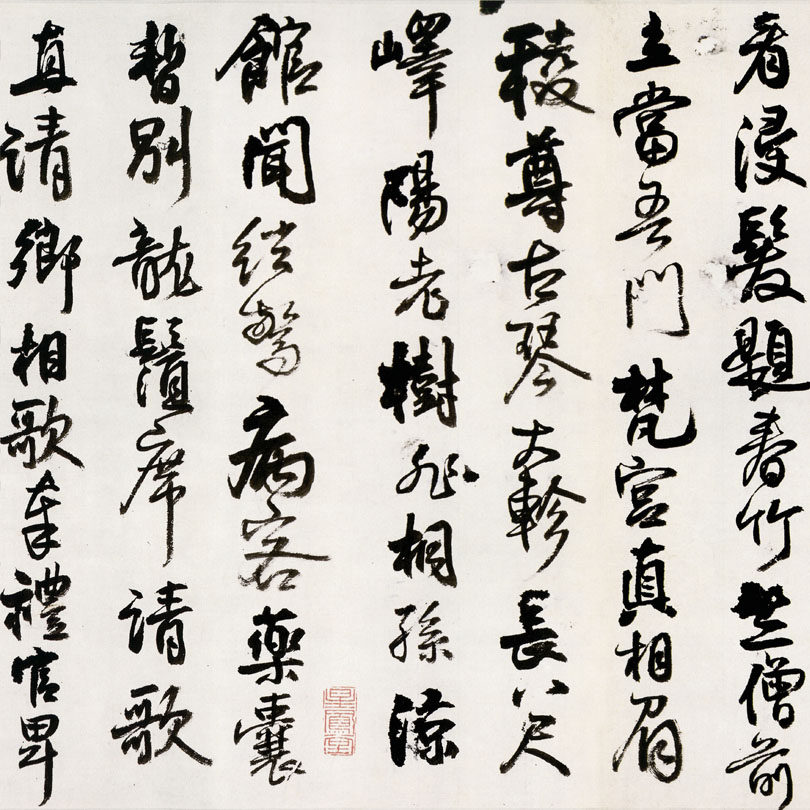 看浸髮題春竹竺僧前
立當吾門梵宮真相眉
稜尊古琴大軫長八尺
嶧陽老樹非桐孫涼
館聞絃驚病客藥囊
暫別龍鬚席請歌
直請卿相歌奉禮官卑